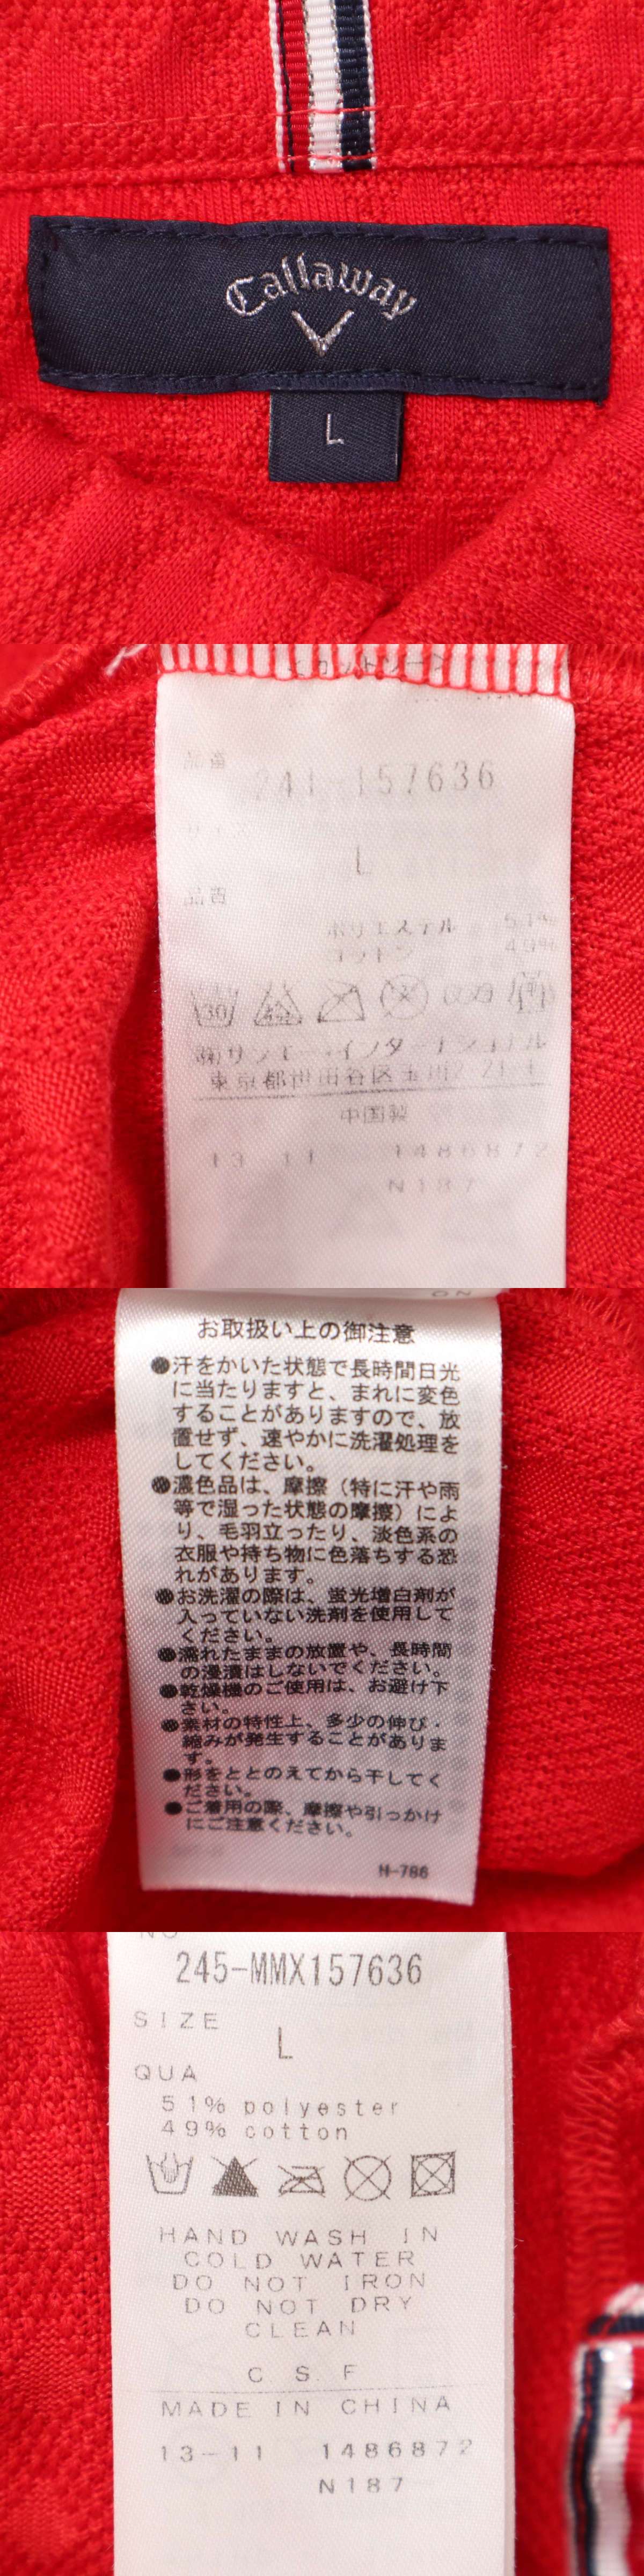 Callaway
L
品番
241-157636
サイズ
L
品質
ポリエステル 51%
コットン 49%
30
㈱サンエー・インターナショナル
東京都世田谷区玉川2-21-1
中国製
13 11 1486872
N187
お取扱い上の御注意
●汗をかいた状態で長時間日光
に当たりますと、まれに変色
することがありますので、放
置せず、速やかに洗濯処理を
してください。
●濃色品は、摩擦（特に汗や雨
等で湿った状態の摩擦）によ
り、毛羽立ったり、淡色系の
衣服や持ち物に色落ちする恐
れがあります。
●お洗濯の際は、蛍光増白剤が
入っていない洗剤を使用して
ください。
●濡れたままの放置や、長時間
の浸漬はしないでください。
●乾燥機のご使用は、お避け下
さい。
●素材の特性上、多少の伸び・
縮みが発生することがありま
す。
●形をととのえてから干してく
ださい。
●ご着用の際、摩擦や引っかけ
にご注意ください。
H-786
NO
245-MMX157636
SIZE
L
QUA
51% polyester
49% cotton
HAND WASH IN
COLD WATER
DO NOT IRON
DO NOT DRY
CLEAN
C S F
MADE IN CHINA
13-11 1486872
N187